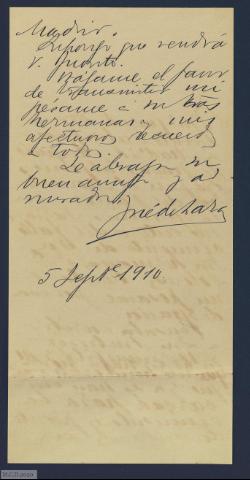 Madrid.
Supongo que vendrá
V. pronto.
Hágame el favor
de transmitir mi
pésame a sus
hermanas y mis
afectuosos recuerdos
a todos.
Le abraza su
buen amigo y ad
mirador
José de Lara
5 Septe 1910